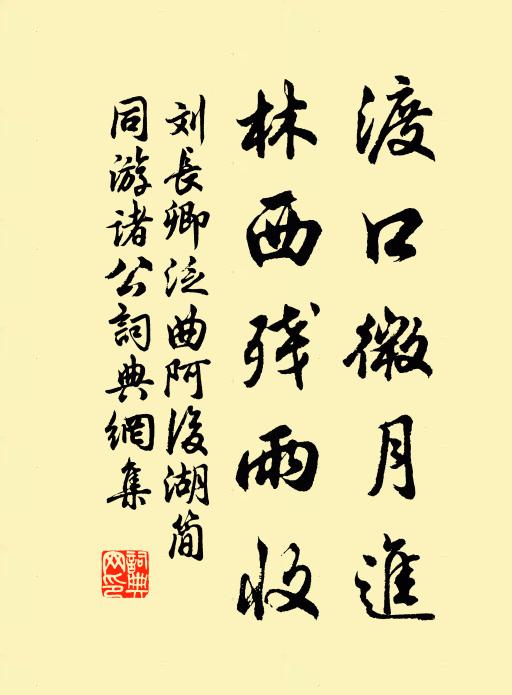 渡口微月進
林西残雨收
刘長卿泛曲阿後湖简
同游诸公詞典網集
詞典網印